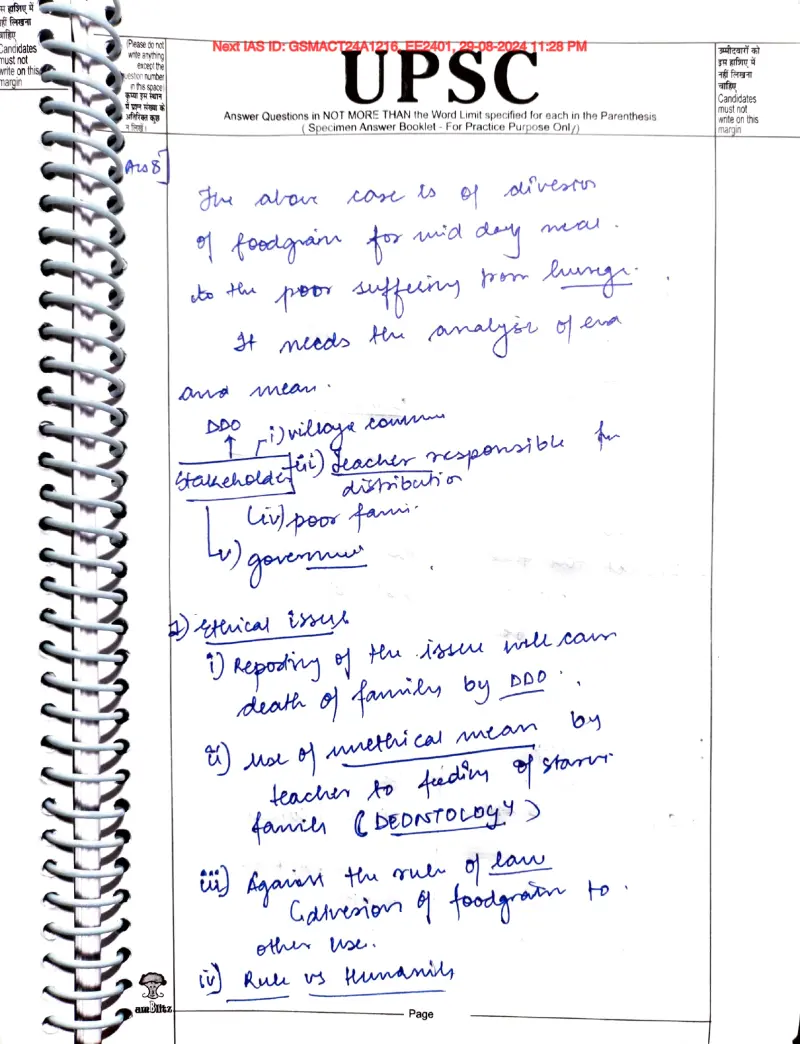 स हाशिए में
हीं लिखना
चाहिए
Candidates
must not
write on this
margin
(Please do not
write anything
except the
question number
in this space)
कृपया इस स्थान
में प्रश्न संख्या के
अतिरिक्त कुछ
न लिखें।
Next IAS ID: GSMACT24A1216, EE2401, 29-08-2024 11:28 PM
UPSC
Answer Questions in NOT MORE THAN the Word Limit specified for each in the Parenthesis
( Specimen Answer Booklet - For Practice Purpose Only)
उम्मीदवारों को
इस हाशिए में
नहीं लिखना
चाहिए
Candidates
must not
write on this
margin
Ans 8
The above case is of diversion
of foodgrain for mid day meal.
to the poor suffering from hunger.
It needs the analysis of end
and mean.
DDO
i) village commu
Stakeholder
iii) teacher responsible for
distribution
(iv) poor fami.
v) government
1) Ethical issues
i) Reporting of the issue will cause
death of family by DDO.
ii) Use of unethical mean by
teacher to feeding of starvi
family (DEONTOLOGY)
iii) Against the rule of law
Gdiversion of foodgrain to
other use.
iv) Rule vs Humanity
amBlitz
Page